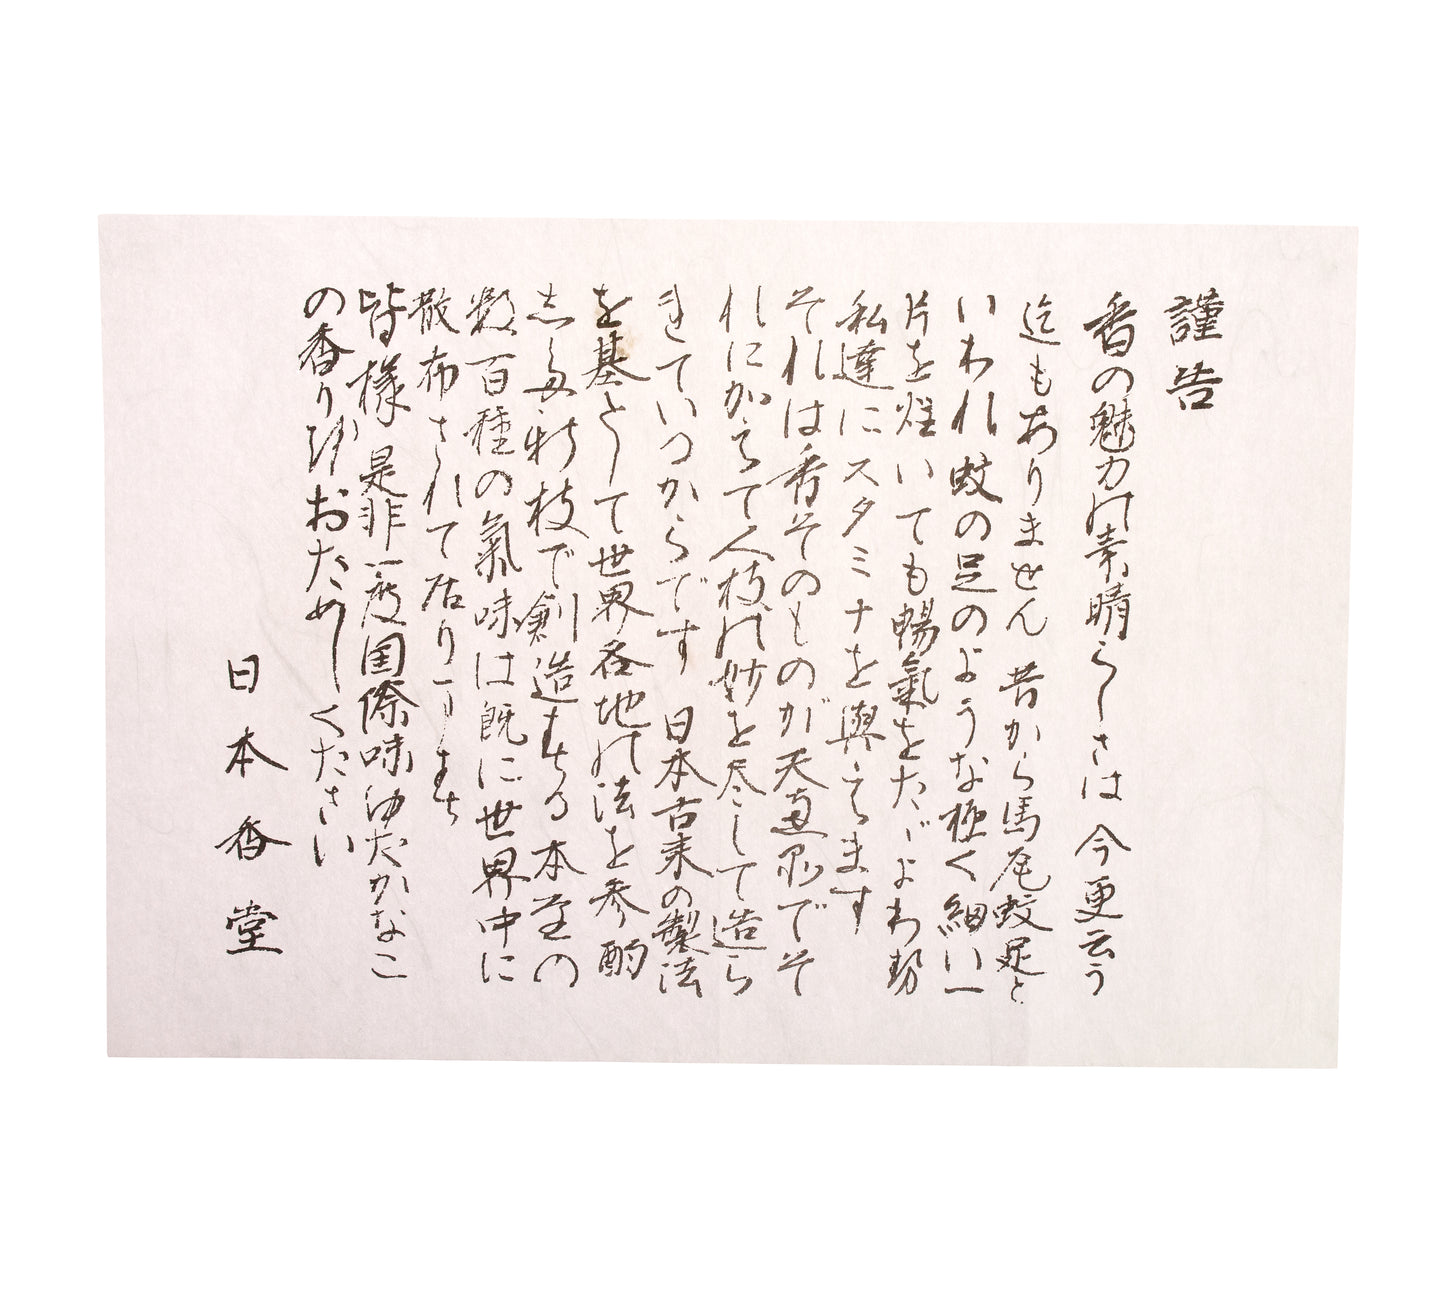 謹告
香の魅力の素晴らしさは 今更云う
迄もありません 昔から馬尾蚊足と
いわれ 蚊の足のような極く細い一
片を炷いても暢氣をたゞよわ勢
私達にスタミナを與えます
それは香そのものが天与でそ
れにかえて人技の妙を尽して造ら
れていつからです 日本古来の製法
を基として世界各地の法を参酌
した新技で創造する本堂の
数百種の氣味は既に世界中に
散布されて居ります
皆様 是非一度国際味ゆたかなこ
の香りをおためしください
日本香堂